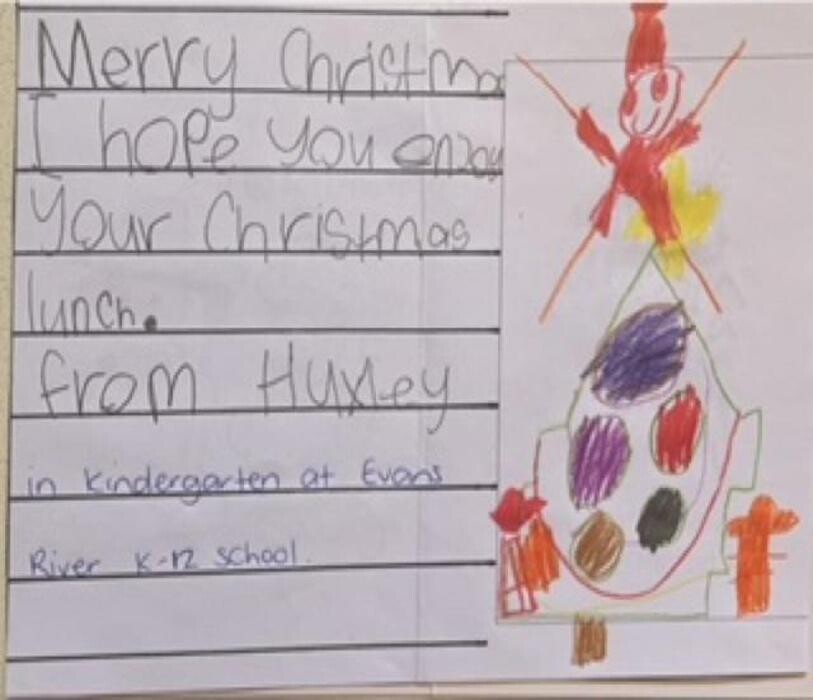 Merry Christmas
I hope you enjoy
your Christmas
lunch.
from Huxley
in kindergarten at Evans
River K-12 school.